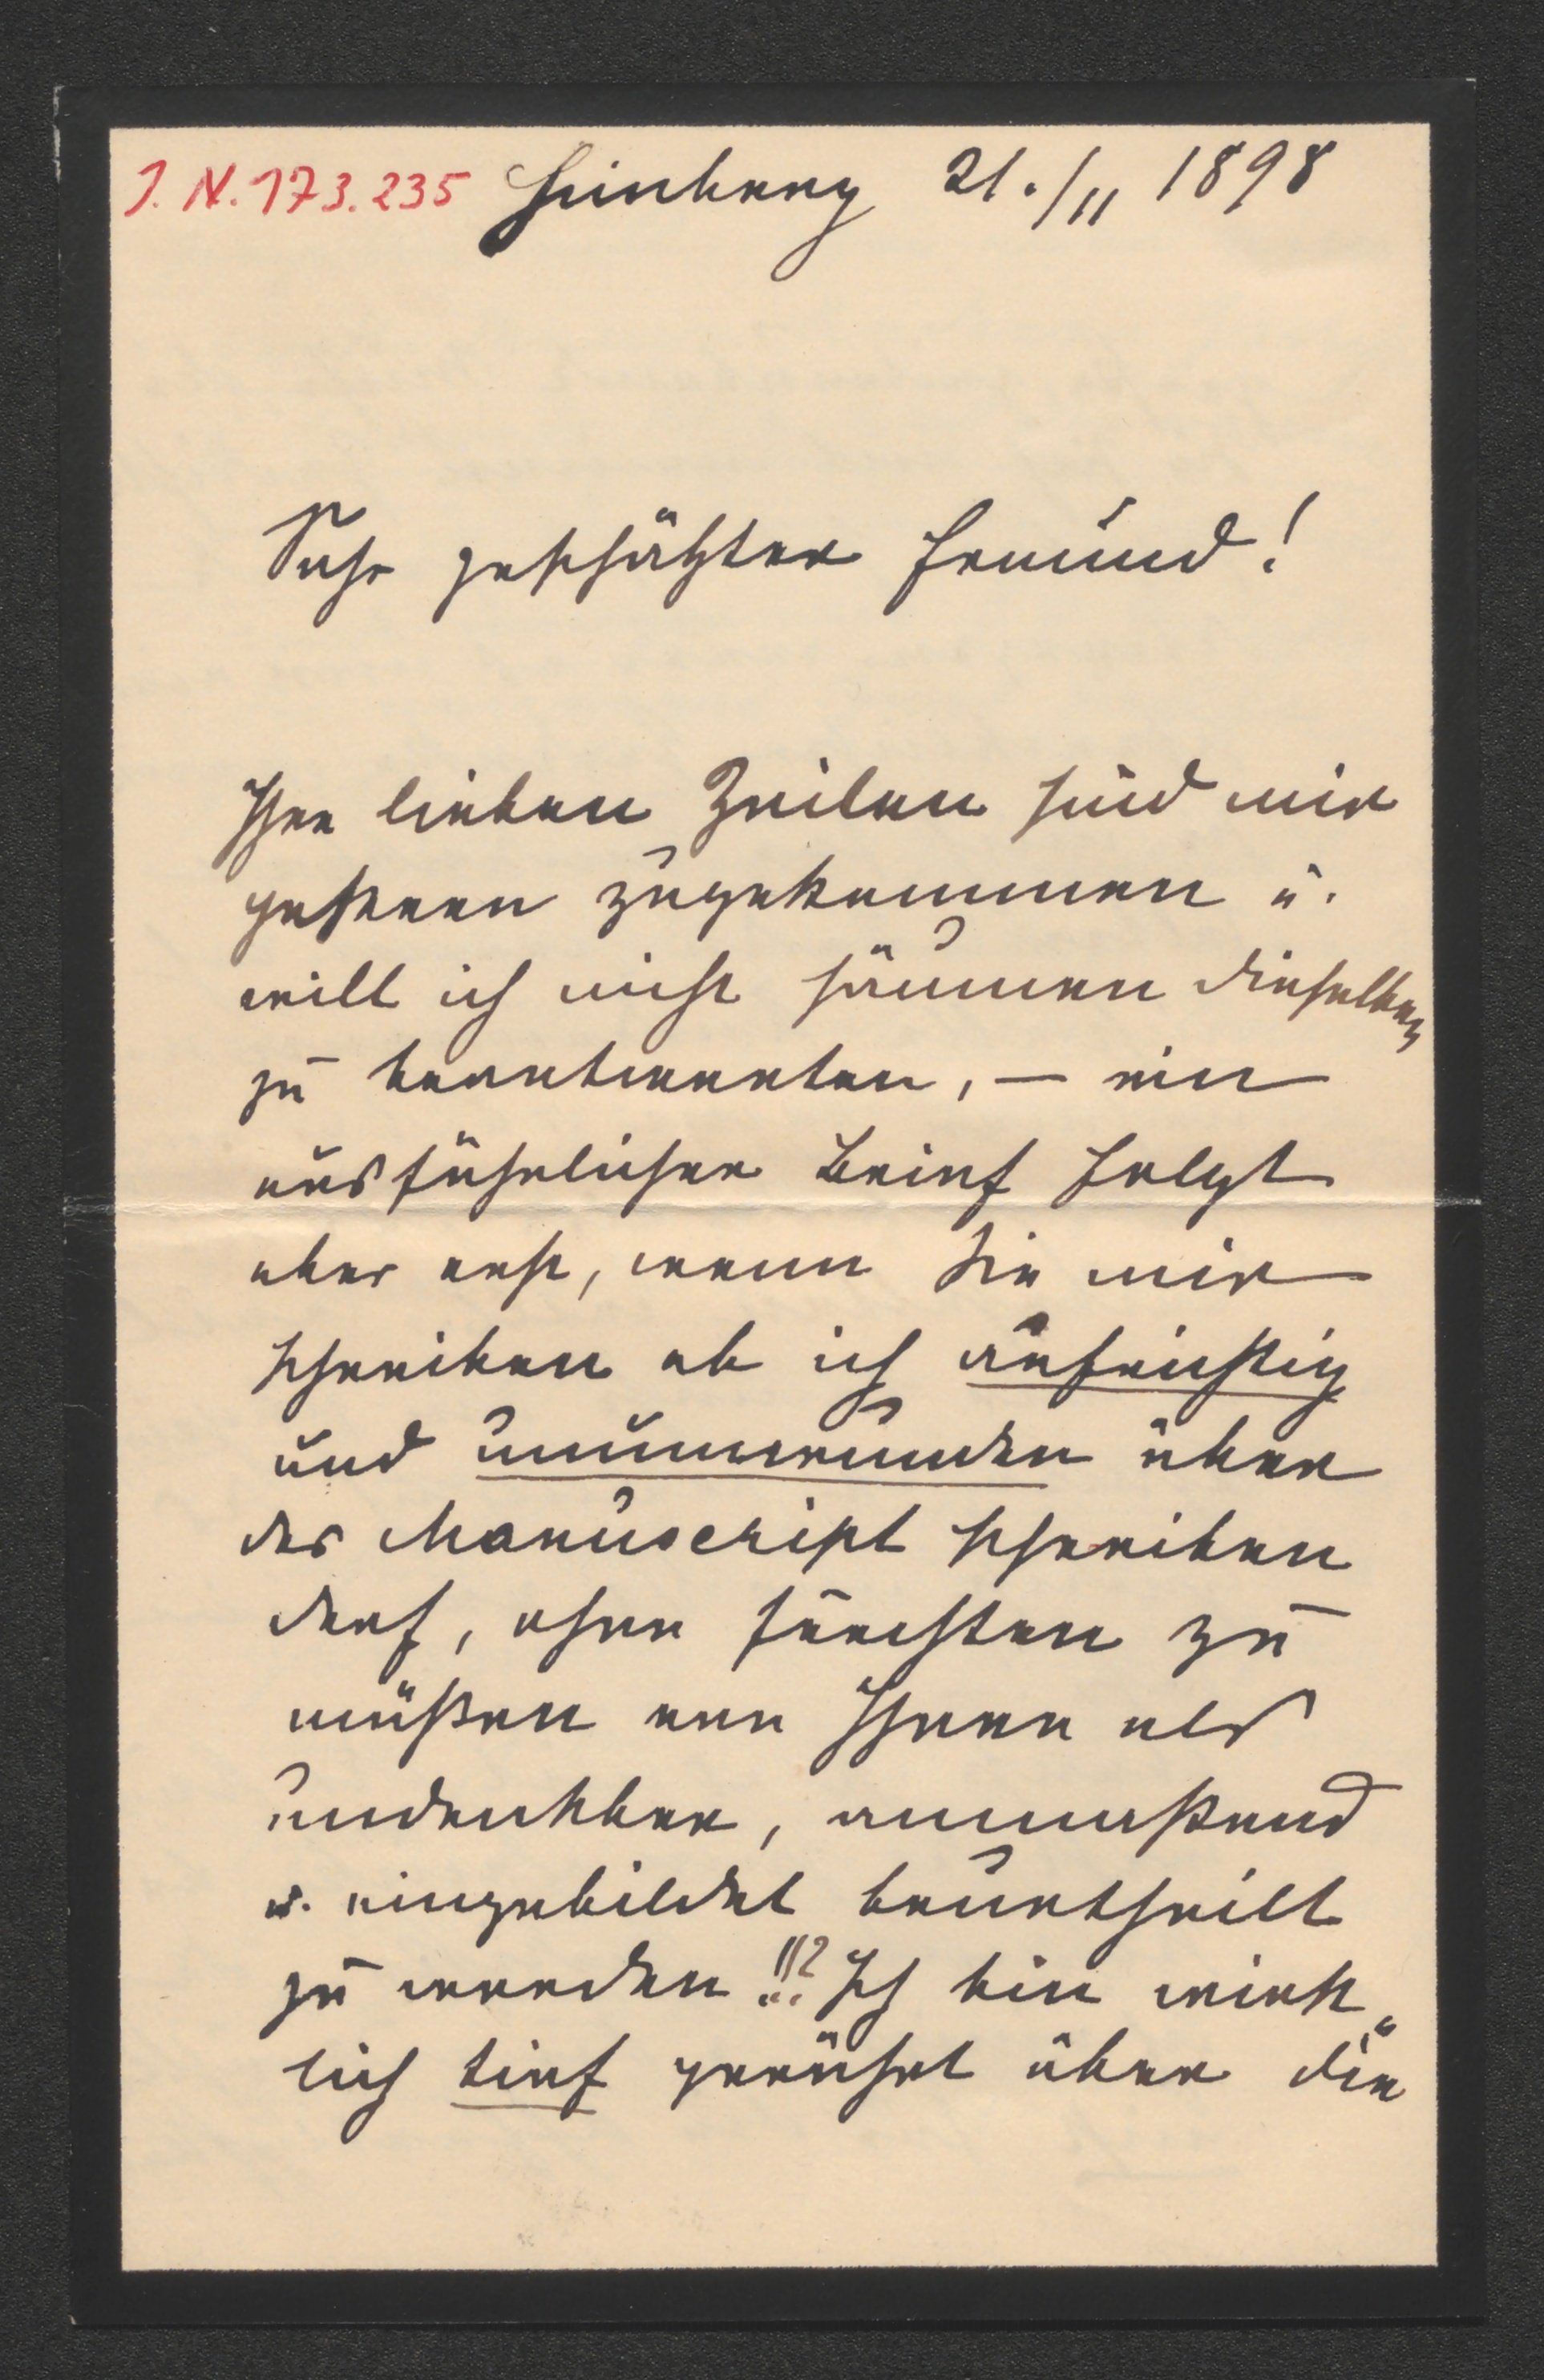 J. N. 173.235 Hainburg 21./11 1898
Sehr geschätzter Freund!
Ihre lieben Zeilen sind mir
gestern zugekommen u.
will ich nicht säumen dieselben
zu beantworten, — ein
ausführlicher Brief folgt
aber erst, wenn Sie mir
schreiben ob ich aufrichtig
und unumwunden über
das Manuscript schreiben
darf, ohne fürchten zu
müßen von Ihnen als
undankbar, anmaßend
u. eingebildet beurtheilt
zu werden!!? Ich bin wirk„
lich tief gerührt über die